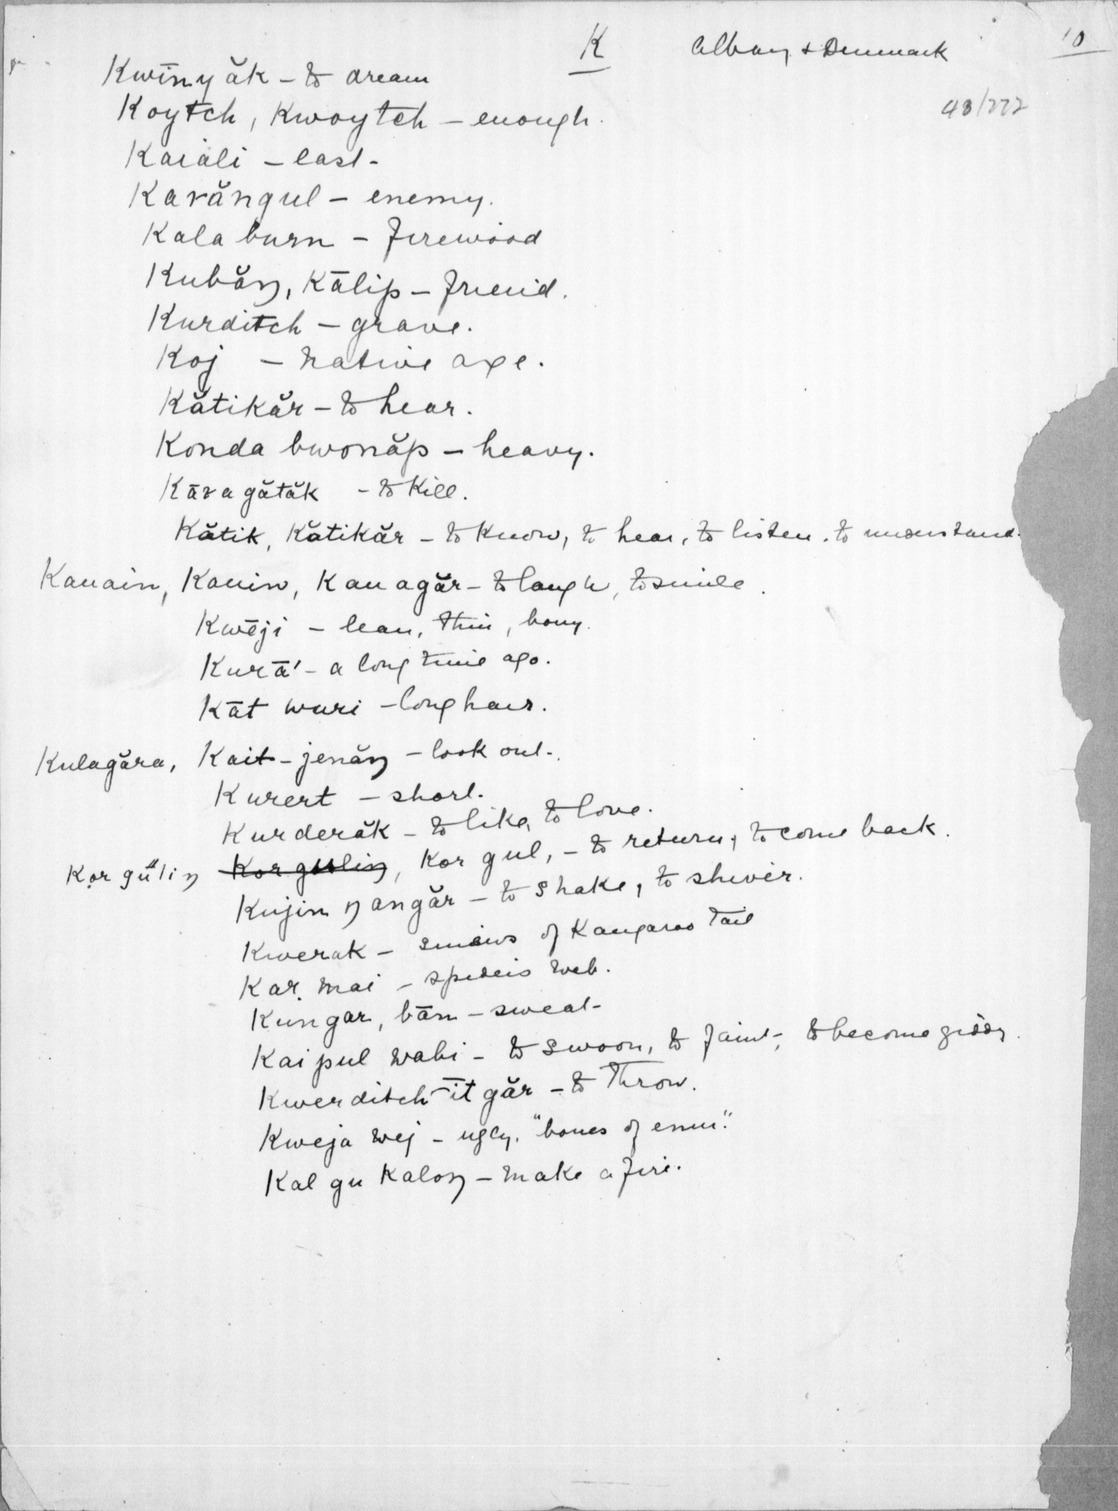 K Albany & Denmark 10
48/222
Kwīnyăk - to dream
Koytch, Kwoytch - enough.
Kaiali - east -
Karăngul - enemy.
Kala burn - firewood
Kubăŋ, Kālip - friend.
Kurditch - grave.
Koj - native axe.
Kătikăr - to hear.
Konda bwonăp - heavy.
Kāragătăk - to kill.
Kătik, Kătikăr - to know, to hear, to listen, to understand.
Kauain, Kauin, Kauagăr - to laugh, to smile.
Kwēji - lean, thin, bony.
Kurā' - a long time ago.
Kāt wuri - long hair.
Kulagăra, Kait-jenăŋ - look out.
Kurert - short.
Kurderăk - to like, to love.
Kor gŭliŋ Kor guliŋ, Kor gul, - to return, to come back.
Kujin ŋangăr - to shake, to shiver.
Kwerak - sinews of Kangaroo tail
Kar mai - spider's web.
Kungar, bān - sweat -
Kaipul wabi - to swoon, to faint, to become giddy.
Kwerditch-ītgăr - to throw.
Kweja wej - ugly, "bones of emu."
Kal gu Kaloŋ - make a fire.